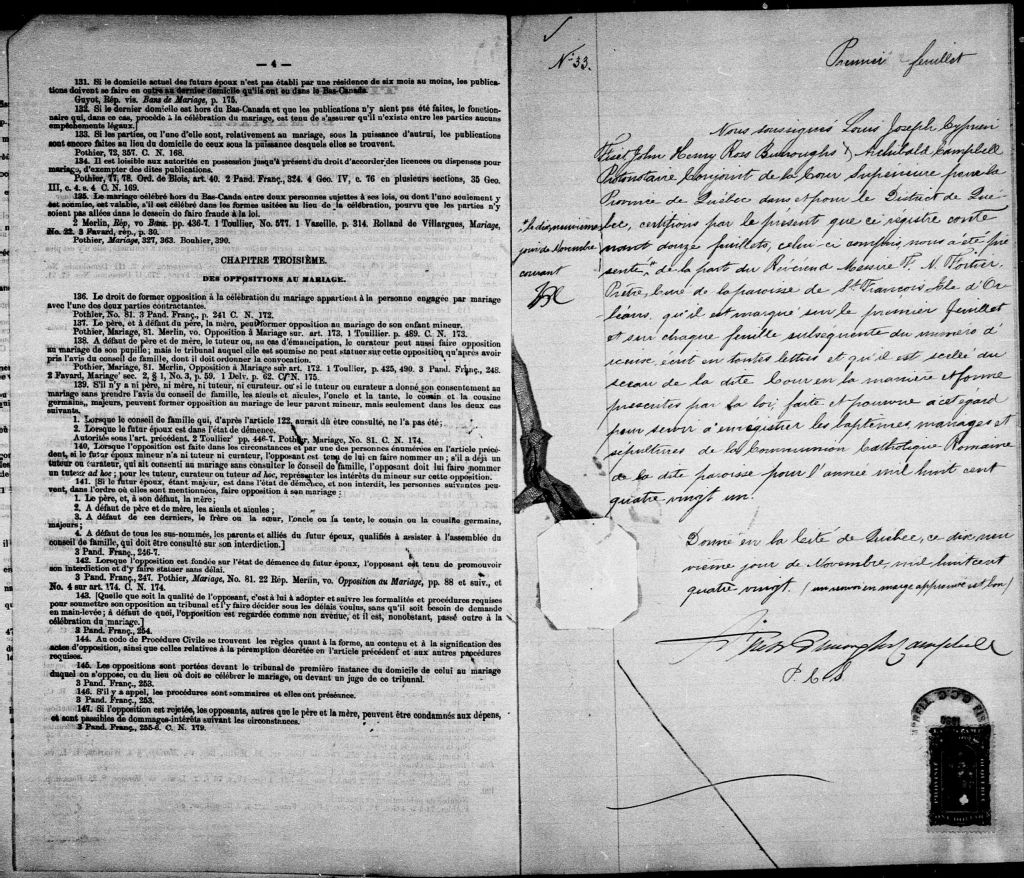 — 4 —
131. Si le domicile actuel des futurs époux n'est pas établi par une résidence de six mois au moins, les publica-
tions doivent se faire en outre au dernier domicile qu'ils ont eu dans le Bas-Canada.
Guyot, Rép. vis. Bans de Mariage, p. 175.
132. Si le dernier domicile est hors du Bas-Canada et que les publications n'y aient pas été faites, le fonction-
naire qui, dans ce cas, procède à la célébration du mariage, est tenu de s'assurer qu'il n'existe entre les parties aucuns
empêchements légaux.]
133. Si les parties, ou l'une d'elle sont, relativement au mariage, sous la puissance d'autrui, les publications
sont encore faites au lieu du domicile de ceux sous la puissance desquels elles se trouvent.
Pothier, 72, 357. C. N. 168.
134. Il est loisible aux autorités en possession jusqu'à présent du droit d'accorder des licences ou dispenses pour
mariage, d'exempter des dites publications.
Pothier, 77, 78. Ord. de Blois, art. 40. 2 Pand. Franç., 324. 4 Geo. IV, c. 76 en plusieurs sections, 35 Geo.
III, c. 4. s. 4 C. N. 169.
135. Le mariage célébré hors du Bas-Canada entre deux personnes sujettes à ses lois, ou dont une seulement y
est soumise, est valable, s'il est célébré dans les formes usitées au lieu de la célébration, pourvu que les parties n'y
soient pas allées dans le dessein de faire fraude à la loi.
2 Merlin, Rép, vo Bans. pp. 436-7. 1 Toulier, No. 577. 1 Vazeille. p. 314. Rolland de Villargues, Mariage,
No. 22. 3 Favard, rép., p. 30.
Pothier, Mariage, 327, 363. Bouhier, 390.
CHAPITRE TROISIÈME.
DES OPPOSITIONS AU MARIAGE.
136. Le droit de former opposition à la célébration du mariage appartient à la personne engagée par mariage
avec l'une des deux parties contractantes.
Pothier, No. 81. 3 Pand. Franç., p. 241 C. N. 172.
137. Le père, et à défaut du père, la mère, peut former opposition au mariage de son enfant mineur.
Pothier, Mariage, 81. Merlin, vo. Opposition à Mariage sur. art. 173. 1 Touillier. p. 489. C. N. 173.
138. A défaut de père et de mère, le tuteur ou, au cas d'émancipation, le curateur peut aussi faire opposition
au mariage de son pupille; mais le tribunal auquel elle est soumise ne peut statuer sur cette opposition qu'après avoir
pris l'avis du conseil de famille, dont il doit ordonner la convocation.
Pothier, Mariage, 81. Merlin, Opposition à Mariage sur art. 172. 1 Toulier, p. 425, 490. 3 Pand. Franç., 248.
2 Favard, Mariage' sec. 2, § 1, No. 3, p. 59. 1 Delv. p. 62. C. N. 175.
139. S'il n'y a ni père, ni mère, ni tuteur, ni curateur, ou si le tuteur ou curateur a donné son consentement au
mariage sans prendre l'avis du conseil de famille, les aïeuls et aïeules, l'oncle et la tante, le cousin et la cousine
germains, majeurs, peuvent former opposition au mariage de leur parent mineur, mais seulement dans les deux cas
suivants.
1. Lorsque le conseil de famille qui, d'après l'article 122, aurait dû être consulté, ne l'a pas été;
2. Lorsque le futur époux est dans l'état de démence.
Autorités sous l'art. précédent. 2 Toullier' pp. 446-7. Pothier, Mariage, No. 81. C. N. 174.
140. Lorsque l'opposition est faite dans les circonstances et par une des personnes énumérées en l'article précé-
dent, si le futur époux mineur n'a ni tuteur ni curateur, l'opposant est tenu de lui en faire nommer un; s'il a déjà un
tuteur ou curateur, qui ait consenti au mariage sans consulter le conseil de famille, l'opposant doit lui faire nommer
un tuteur ad hoc; pour les tuteur, curateur ou tuteur ad hoc, représenter les intérêts du mineur sur cette opposition.
141. [Si le futur époux, étant majeur, est dans l'état de démence, et non interdit, les personnes suivantes peu-
vent, dans l'ordre où elles sont mentionnées, faire opposition à son mariage:
1. Le père, et, à son défaut, la mère;
2. A défaut de père et de mère, les aïeuls et aïeules;
3. A défaut de ces derniers, le frère ou la sœur, l'oncle ou la tante, le cousin ou la cousine germains,
majeurs;
4. A défaut de tous les sus-nommés, les parents et alliés du futur époux, qualifiés à assister à l'assemblée du
conseil de famille, qui doit être consulté sur son interdiction.]
3 Pand. Franç., 246-7.
142. Lorsque l'opposition est fondée sur l'état de démence du futur époux, l'opposant est tenu de promouvoir
son interdiction et d'y faire statuer sans délai.
3 Pand. Franç., 247. Pothier, Mariage, No. 81. 22 Rép. Merlin, vo. Opposition au Mariage, pp. 88 et suiv., et
No. 4 sur art. 174. C. N. 174.
143. [Quelle que soit la qualité de l'opposant, c'est à lui à adopter et suivre les formalités et procédures requises
pour soumettre son opposition au tribunal et l'y faire décider sous les délais voulus, sans qu'il soit besoin de demande
en main-levée; à défaut de quoi, l'opposition est regardée comme non avenue, et il est, nonobstant, passé outre à la
célébration du mariage.]
3 Pand. Franç., 254.
144. Au code de Procédure Civile se trouvent les règles quant à la forme, au contenu et à la signification des
actes d'opposition, ainsi que celles relatives à la péremption décrétée en l'article précédent et aux autres procédures
requises.
145. Les oppositions sont portées devant le tribunal de première instance du domicile de celui au mariage
duquel on s'oppose, ou du lieu où doit se célébrer le mariage, ou devant un juge de ce tribunal.
3 Pand. Franç., 253.
146. S'il y a appel, les procédures sont sommaires et elles ont préséance.
3 Pand. Franç., 253.
147. Si l'opposition est rejetée, les opposants, autres que le père et la mère, peuvent être condamnés aux dépens,
et sont passibles de dommages-intérêts suivant les circonstances.
3 Pand. Franç., 255-6. C. N. 179.
No 33.
Premier feuillet
Nous soussignés Louis Joseph Cyprien
Fiset John Henry Ross Burroughs & Archibald Campbell
Protonotaire Conjoint de la Cour Supérieure pour la
Province de Québec dans et pour le District de Qué-
bec, certifions par le présent que ce régistre conte
nant douze feuillets, celui-ci compris, nous a été pré
senté "le dix neuvieme
jour de Novembre
courant
de la part du Révérend Messire F. N. Fortier,
Prêtre, Curé de la paroisse de St François, Ile d'Or-
léans, qu'il est marqué sur le premier feuillet
et sur chaque feuille subséquente du numero d'
iceux, écrit en toutes lettres et qu'il est scellé du
sceau de la dite Cour en la manière et forme
prescrites par la loi, faite et pourvue à cet égard
pour servir à enregistrer les baptêmes, mariages et
sépultures de la Communion Catholique Romaine
de la dite paroisse pour l'année mil huit cent
quatre vingt un.
Donné en la Cité de Québec, ce dix neu
vieme jour de Novembre, mil huit cent
quatre vingt. (un renvoi en marge approuvé est bon)
Fiset Burroughs Campbell
P. C. S.